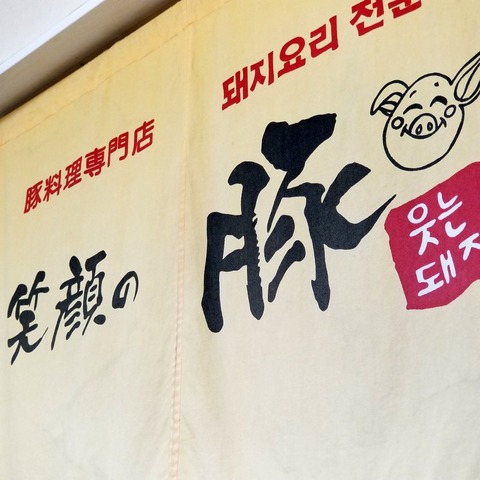 豚料理専門店
돼지요리 전문
笑顔の
豚
웃는
돼지